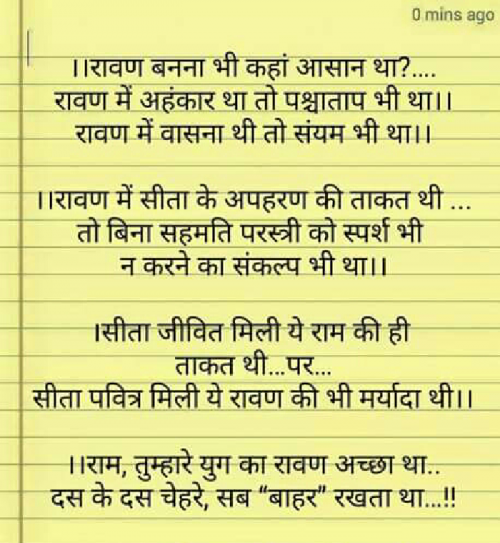 0 mins ago
।।रावण बनना भी कहां आसान था?....
रावण में अहंकार था तो पश्चाताप भी था।।
रावण में वासना थी तो संयम भी था।।
।।रावण में सीता के अपहरण की ताकत थी ...
तो बिना सहमति परस्त्री को स्पर्श भी
न करने का संकल्प भी था।।
।सीता जीवित मिली ये राम की ही
ताकत थी...पर...
सीता पवित्र मिली ये रावण की भी मर्यादा थी।।
।।राम, तुम्हारे युग का रावण अच्छा था..
दस के दस चेहरे, सब “बाहर” रखता था...!!